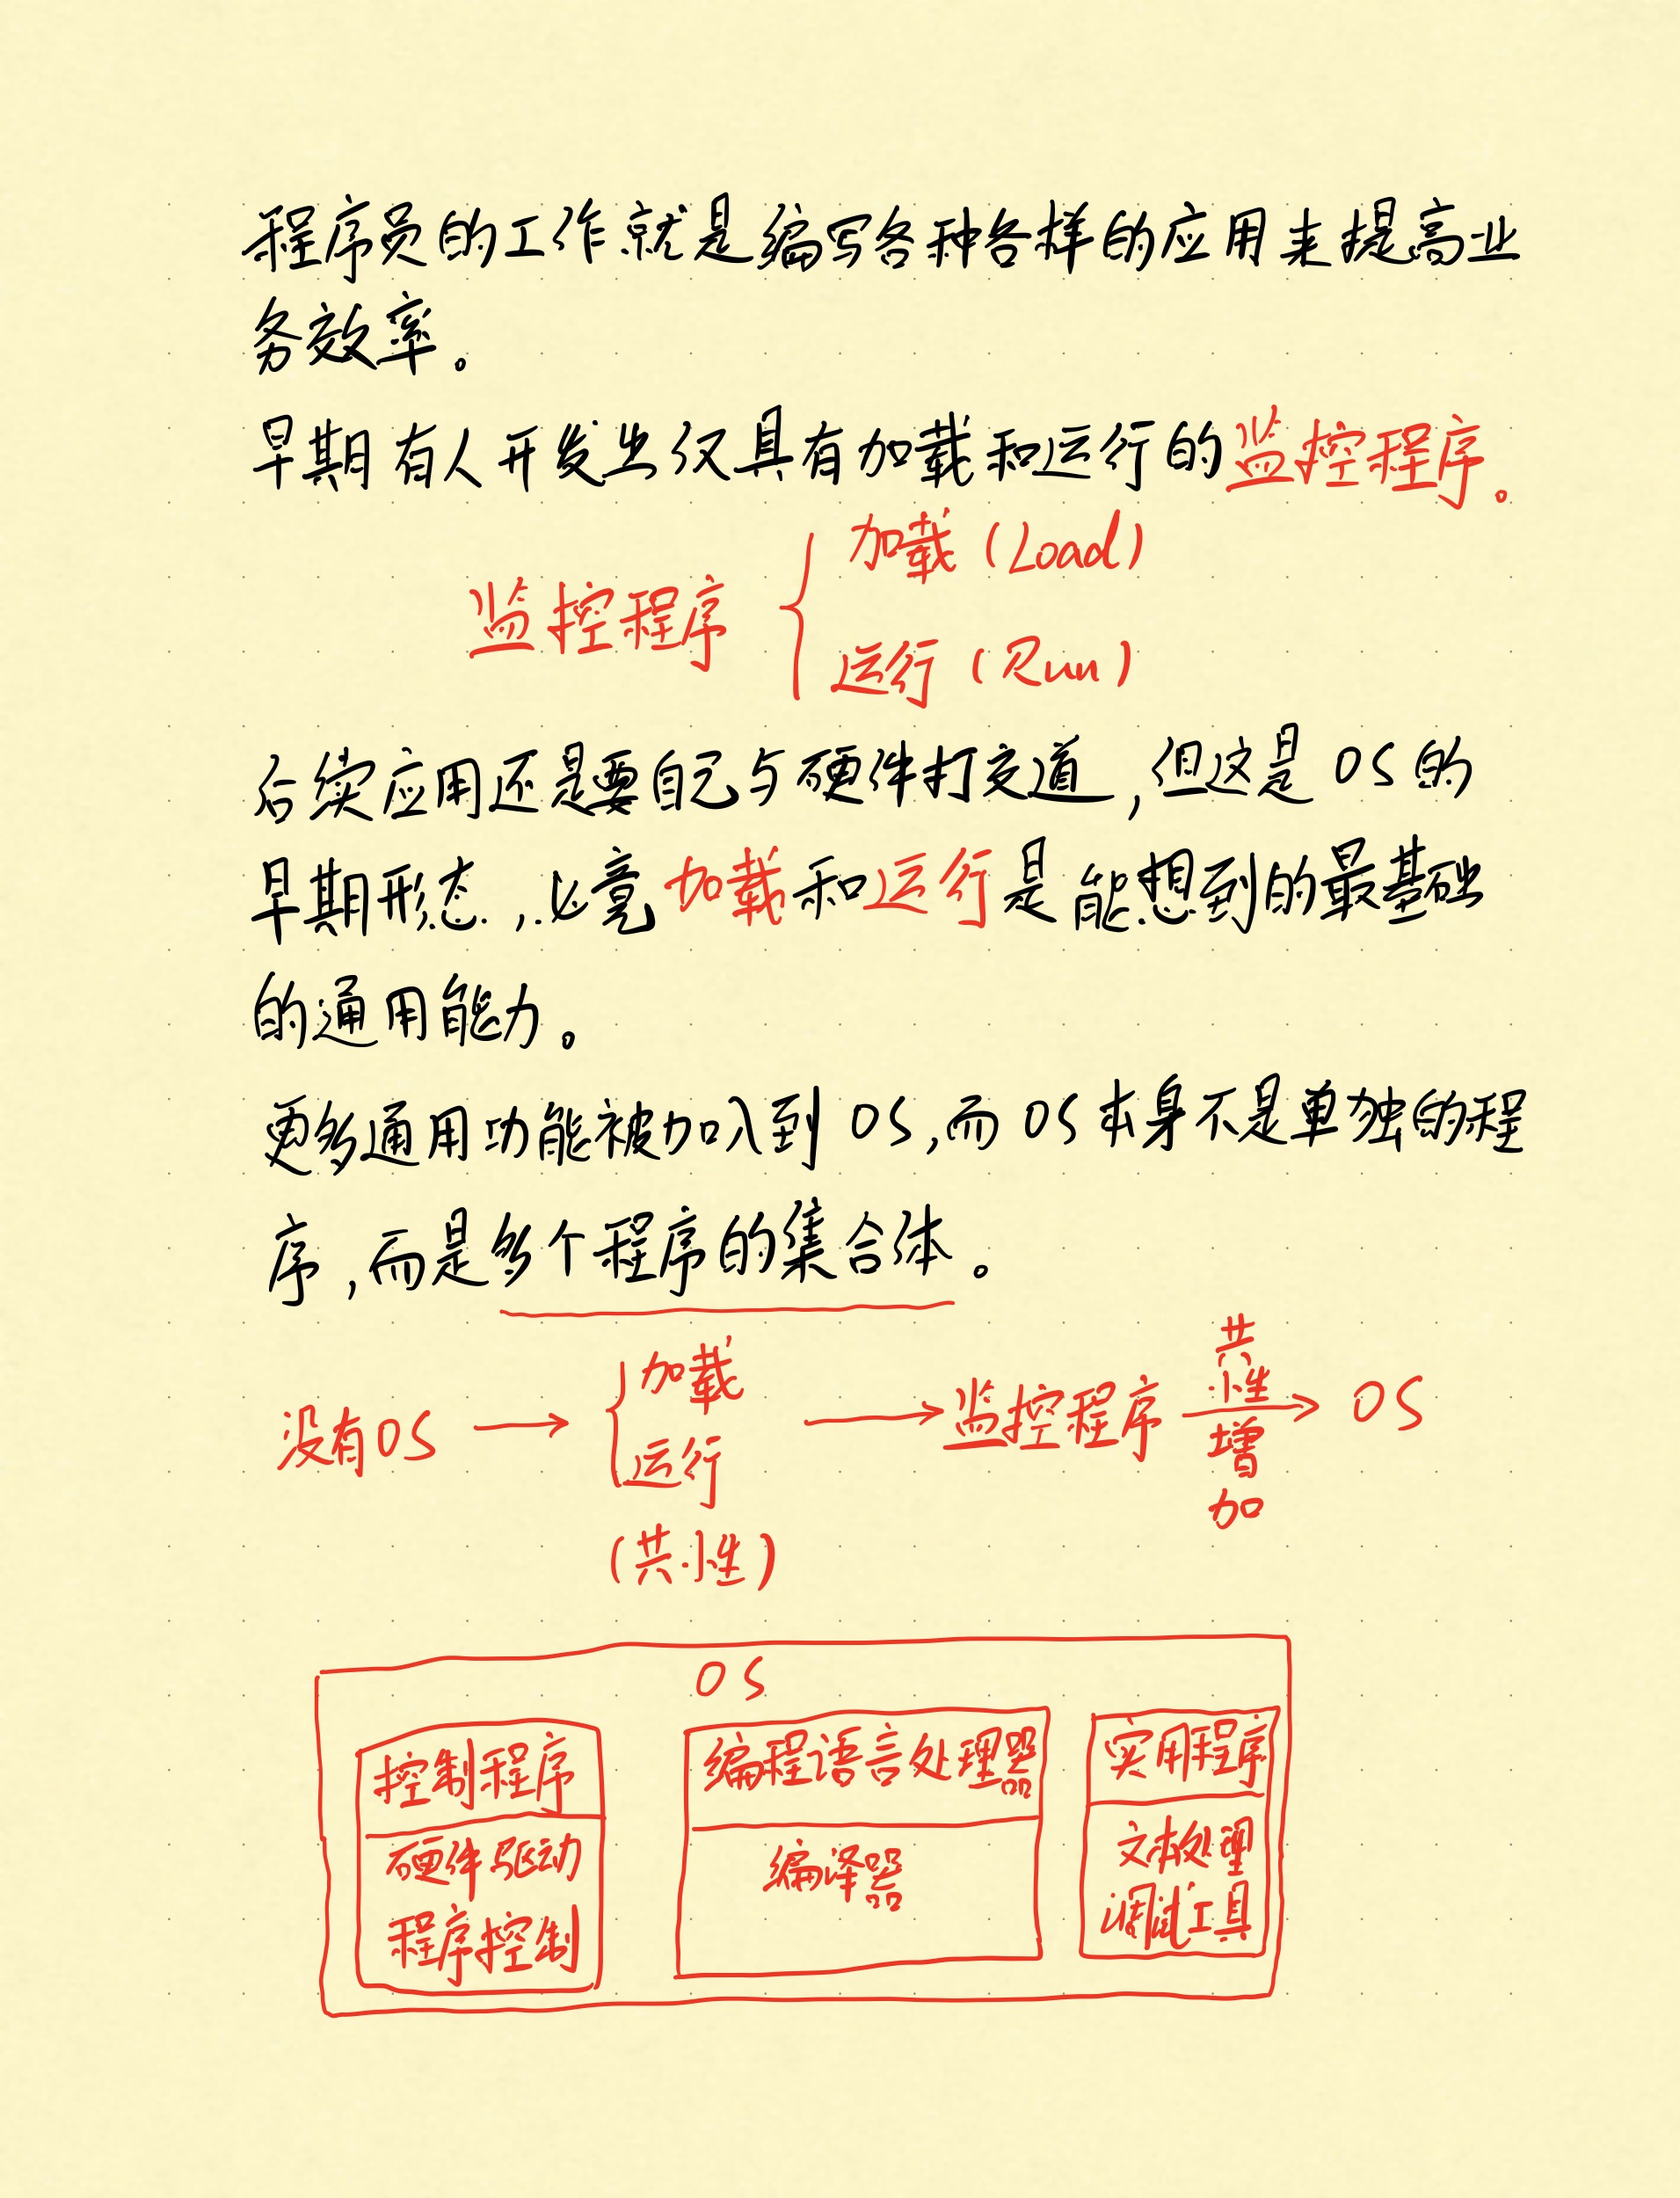 程序员的工作就是编写各种各样的应用来提高业
务效率。
早期有人开发出仅具有加载和运行的监控程序。
加载(Load)
监控程序
运行(Run)
后续应用还是要自己与硬件打交道,但这是OS的
早期形态,必竟加载和运行是能想到的最基础
的通用能力。
更多通用功能被加入到OS,而OS本身不是单独的程
序,而是多个程序的集合体。
没有OS → 加载 运行 (共性) → 监控程序 共性增加 → OS
OS
控制程序
硬件驱动
程序控制
编程语言处理器
编译器
实用程序
文本处理
调试工具